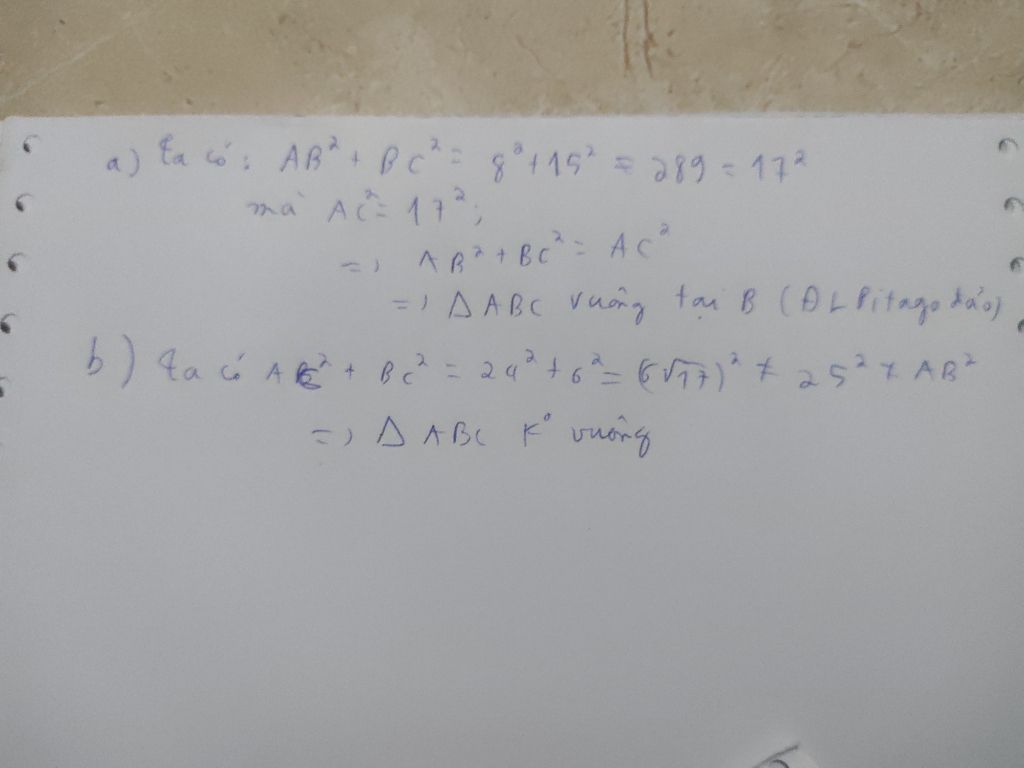 a) Ta có: AB² + BC² = 8² + 15² = 289 = 17²
mà AC² = 17²;
=> AB² + BC² = AC²
=> Δ ABC vuông tại B (ĐL Pitago đảo)
b) Ta có AC² + BC² = 24² + 6² = (6√17)² ≠ 25² ≠ AB²
=> Δ ABC K° vuông